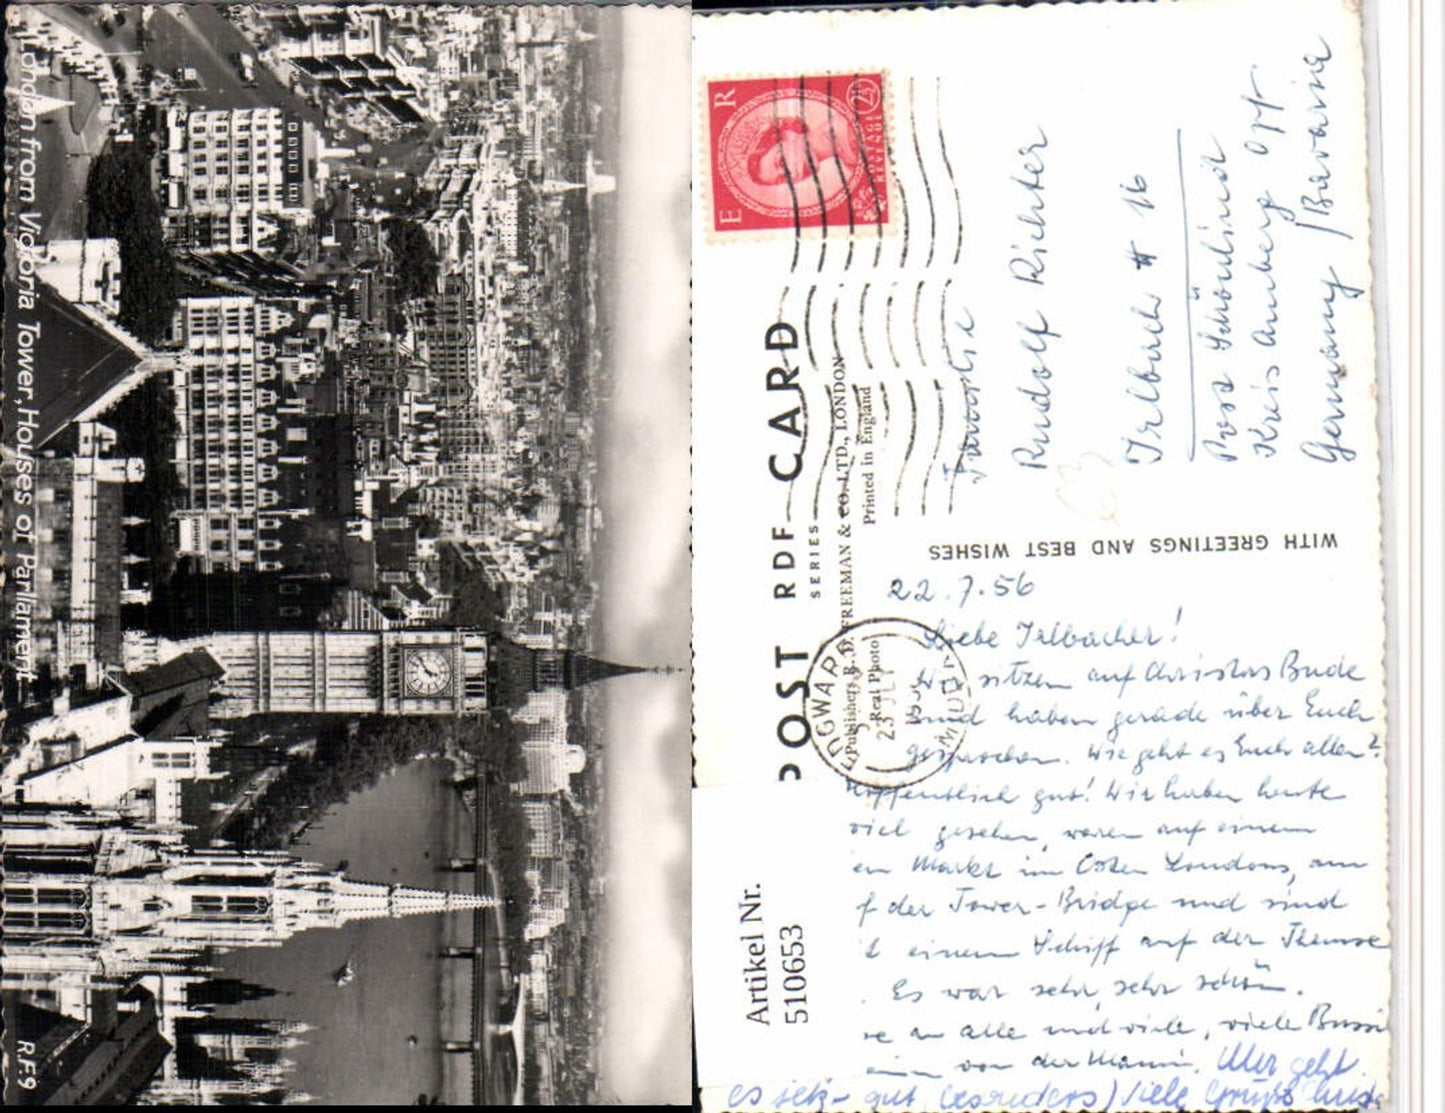 London from Victoria Tower, Houses of Parliament
R.F.9
E R
2½
POSTAGE
REVENUE
POST CARD
RDF
SERIES
Publishers R. D. FREEMAN & CO. LTD., LONDON
Real Photo
Printed in England
23 JLY
Familie
Rudolf Richter
Irlbach # 16
Post Schönlind
Kreis Amberg Opf.
Germany / Bavaria
WITH GREETINGS AND BEST WISHES
22.7.56
Liebe Irlbacher!
Wir sitzen auf Christas Bude
und haben gerade über Euch
gesprochen. Wie geht es Euch allen?
Hoffentlich gut! Wir haben heute
viel gesehen, waren auf einem
Markt im Osten Londons, am
f der Tower-Bridge und sind
einem Schiff auf der Themse
. Es war sehr, sehr schön.
an alle und viele, viele Bussi
von der Mami. Mir geht
es sehr gut (besonders) Viele Grüße
Artikel Nr.
510653